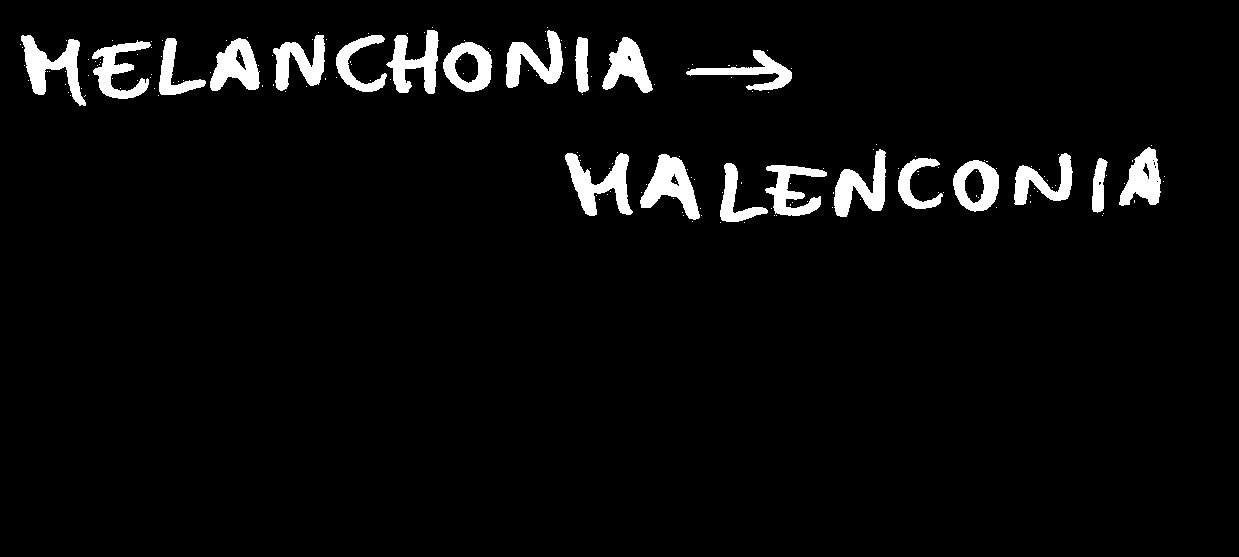 MELANCHONIA →
MALENCONIA